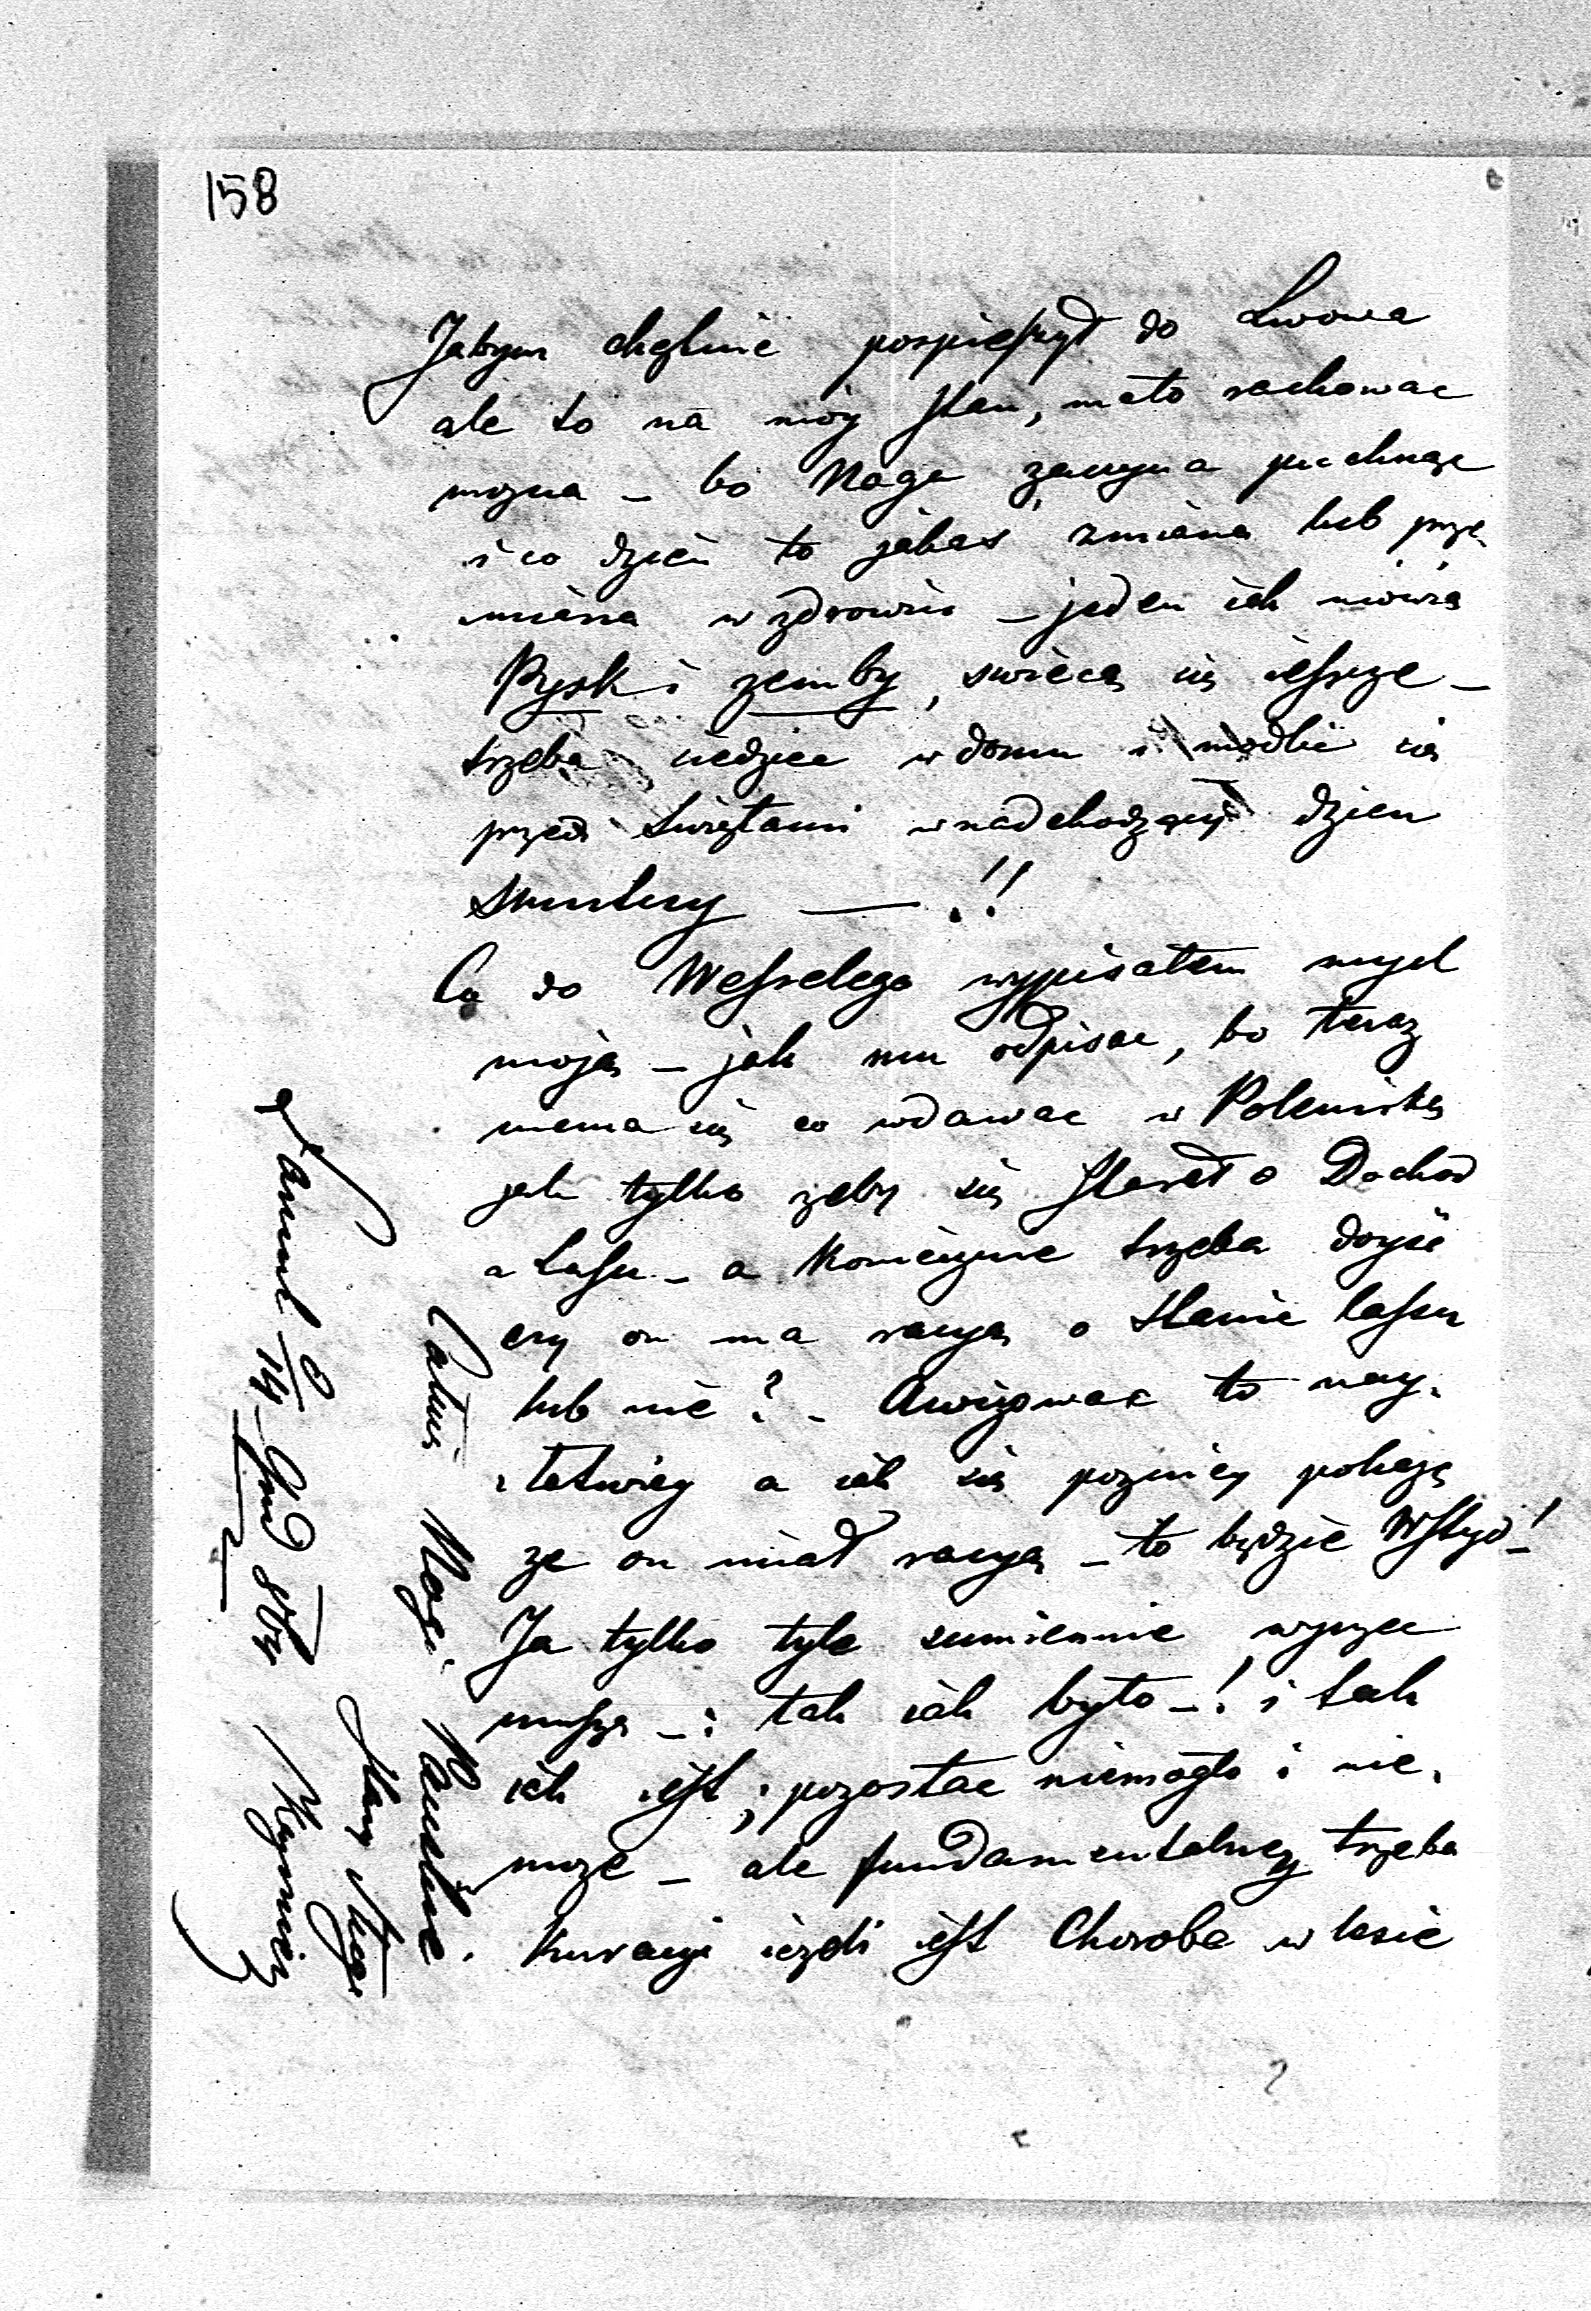 158
Jabym chętnie pospieszył do Lwowa
ale to na móy stan, mało rachowac
mozna – bo Noga zaczyna puchnąc
i co dzień to jakas zmiana lub prze
miana w zdrowiu – jeden ich mowią
Pysk i zemby, swiecą się ieszcze –
trzeba siedziec w domu i modlić się
przed Swiętami w nadchodzący dzien
smutny — !!
Co do Wesselego wypisałem mysl
moją – jak mu odpisac, bo teraz
niema się co wdawac w Polemikę
jak tylko zeby się starał o Dochod
z Lassu – a koniecznie trzeba dojść
czy on ma racyą o stanie lassu
lub nie? – Awizowac to nay.
łatwiey a iak się pozniey pokaze
ze on miał racyą – to będzie Wstyd!
Ja tylko tyle sumiennie wyrzec
muszę –: tak iak było –! i tak
iak iest; pozostac niemogło i nie.
moze – ale fundamentalney trzeba
kuracyi iezeli iest Choroba w lesie
Całuię Nogi Panskie.
stary sługa